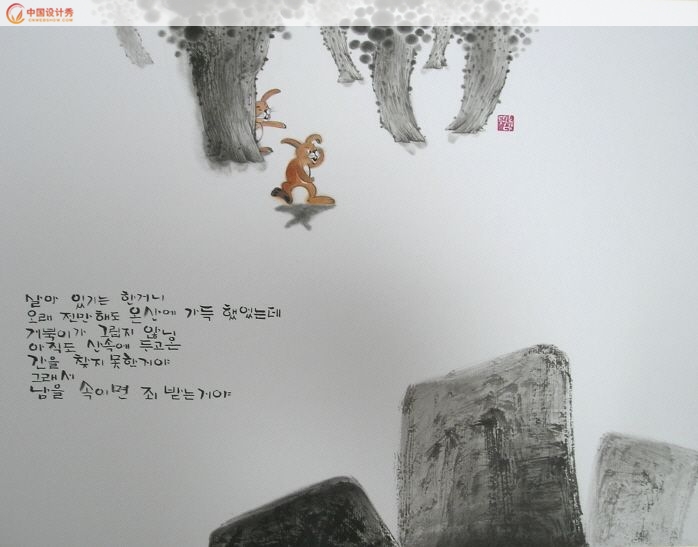 中国设计秀
살아 있기는 한거니
오래 전만해도 온산에 가득 했었는데
거북이가 그립지 않니
아직도 산속에 두고온
간을 찾지 못한거야
그래서
남을 속이면 죄 받는거야